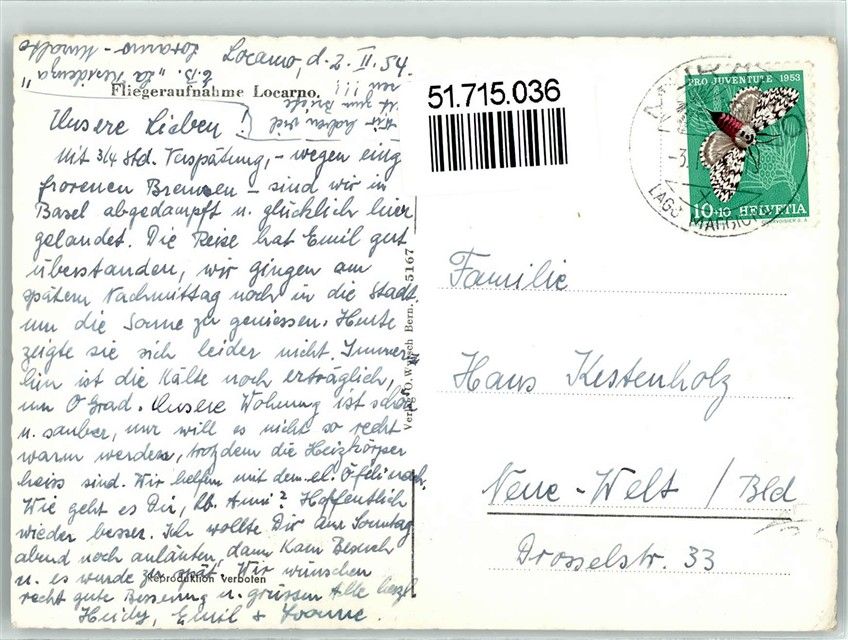 Locarno, d. 2. II. 54.
Fliegeraufnahme Locarno.
Unsere Lieben!
Mit 3/4 Std. Verspätung, - wegen eing
frorenen Bremsen - sind wir in
Basel abgedampft u. glücklich hier
gelandet. Die Reise hat Emil gut
überstanden, wir gingen am
spätern Nachmittag noch in die Stadt
um die Sonne zu geniessen. Heute
zeigte sie sich leider nicht. Immer-
hin ist die Kälte noch erträglich,
um 0 Grad. Unsere Wohnung ist schön
u. sauber, nur will es nicht so recht
warm werden, trotzdem die Heizkörper
heiss sind. Wir helfen mit dem el. Öfeli nach.
Wie geht es Dir, lb. Anni? Hoffentlich
wieder besser. Ich wollte Dir am Sonntag
abend noch anläuten, dann kam Besuch
u. es wurde zu spät. Wir wünschen
Reproduktion verboten
recht gute Besserung u. grüssen Alle herzl.
Heidy, Emil & Yvonne.
"La Residenza"
Locarno - Muralto
Verlag O. Wyrsch Bern. 5167
51.715.036
PRO JUVENTUTE 1953
10+10 HELVETIA
COURVOISIER S.A.
LAGO MAGGIORE
Familie
Hans Kestenholz
Neue-Welt / Bld
Drosselstr. 33